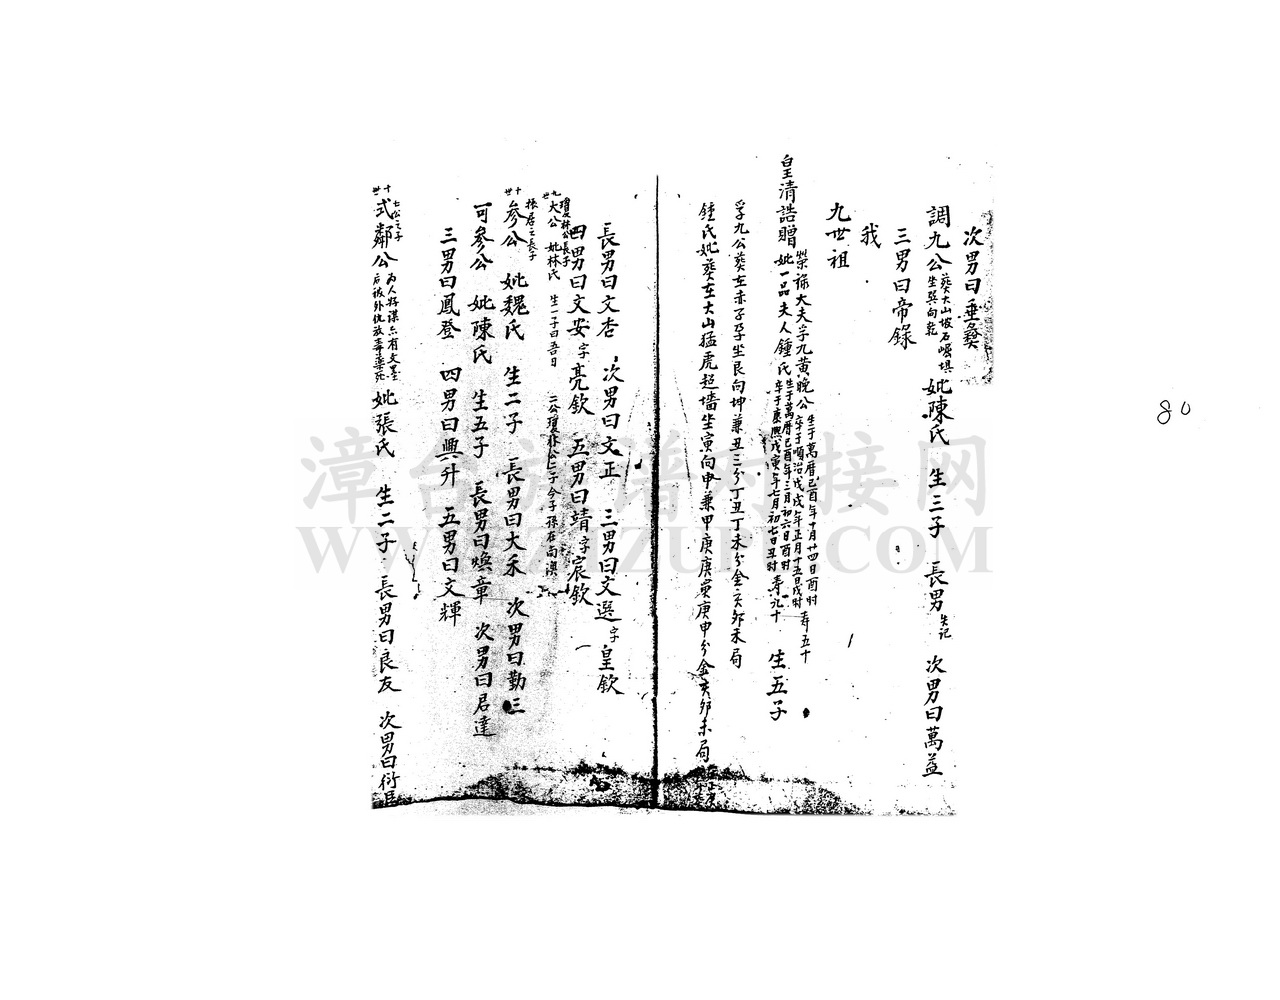 次男曰垂彝
調九公 葬大山坡石崛堪 坐巽向乾 妣陳氏 生三子 長男失記 次男曰萬益
三男曰帝錄
我
九世祖
皇清誥贈 榮祿大夫孚九黃晚公 生于萬曆己酉年十月廿四日酉时 卒于順治戊戌年正月十五日戌时 寿五十
妣一品夫人鍾氏 生于萬曆己酉年三月初六日酉时 卒于康熙戊寅年七月初七日丑时 寿九十 生五子
孚九公葬在赤子孕坐艮向坤兼丑三分丁丑丁未分金亥卯未局
鍾氏妣葬在大山猛虎超墻坐寅向申兼甲庚庚寅庚申分金亥卯未局
長男曰文杏 次男曰文正 三男曰文選 字皇欽
四男曰文安 字亮欽 五男曰靖 字宸欽
瓊林公長子
九世 大公 妣林氏 生一子曰吾日 二公瓊林公二子今子孫在南澳
振居之長子
十世 參公 妣魏氏 生二子 長男曰大禾 次男曰勤三
可參公 妣陳氏 生五子 長男曰煥章 次男曰居達
三男曰鳳登 四男曰興升 五男曰文輝
七公之子
十世 式鄰公 为人好謀亦有文墨 后被外仇放毒藥死 妣張氏 生二子 長男曰良友 次男曰衍臣
80
漳台族谱对接网
WWW.ZTZUPU.COM